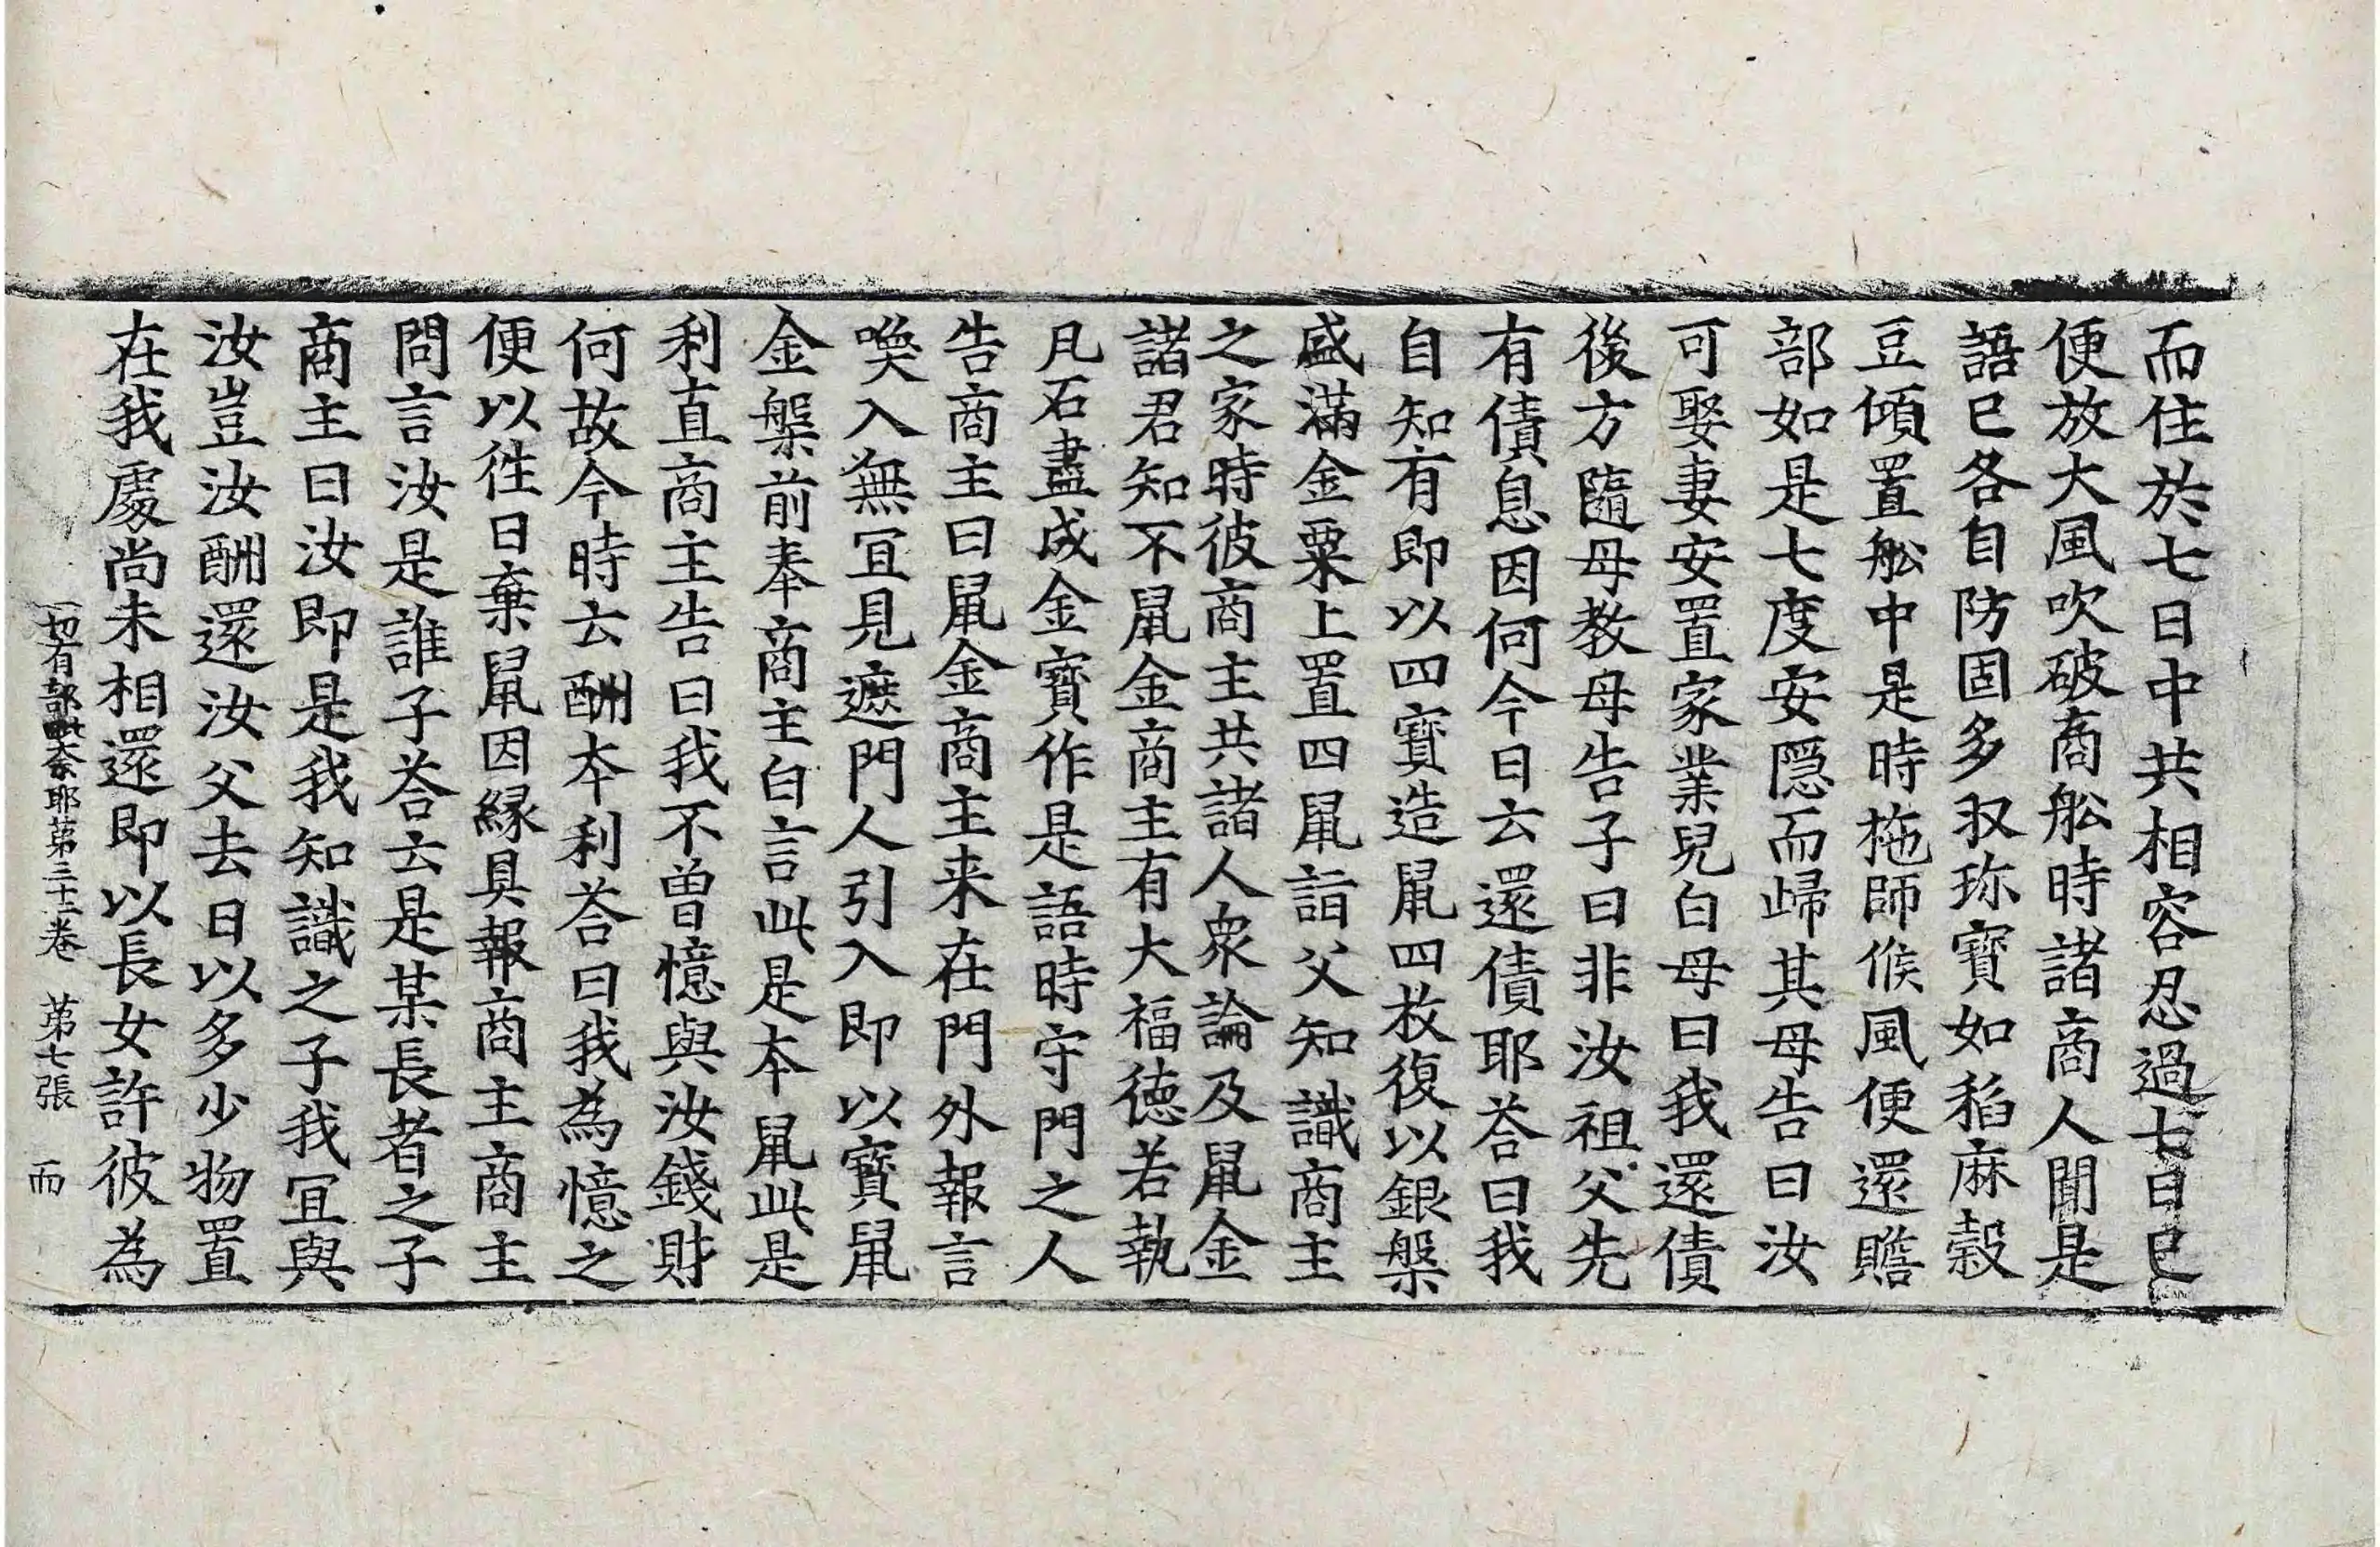 而住於七日中共相容忍過七日已
便放大風吹破商舩時諸商人聞是
語已各自防固多収珎寶如稻麻穀
豆傾置舩中是時拖師候風便還贍
部如是七度安隠而歸其母告曰汝
可娶妻安置家業兒白母曰我還債
後方隨母教母告子曰非汝祖父先
有債息因何今日云還債耶荅曰我
自知有即以四寶造鼠四枚復以銀槃
盛滿金粟上置四鼠詣父知識商主
之家時彼商主共諸人衆論及鼠金
諸君知不鼠金商主有大福德若執
凡石盡成金寶作是語時守門之人
告商主曰鼠金商主来在門外報言
喚入無冝見遮門人引入即以寶鼠
金槃前奉商主白言此是本鼠此是
利直商主告曰我不曾憶與汝錢財
何故今時云酬本利荅曰我為憶之
便以徃日棄鼠因緣具報商主商主
問言汝是誰子荅云是某長者之子
商主曰汝即是我知識之子我冝與
汝豈汝酬還汝父去日以多少物置
在我處尚未相還即以長女許彼為
一切有部毗奈耶第三十二卷 第七張 而